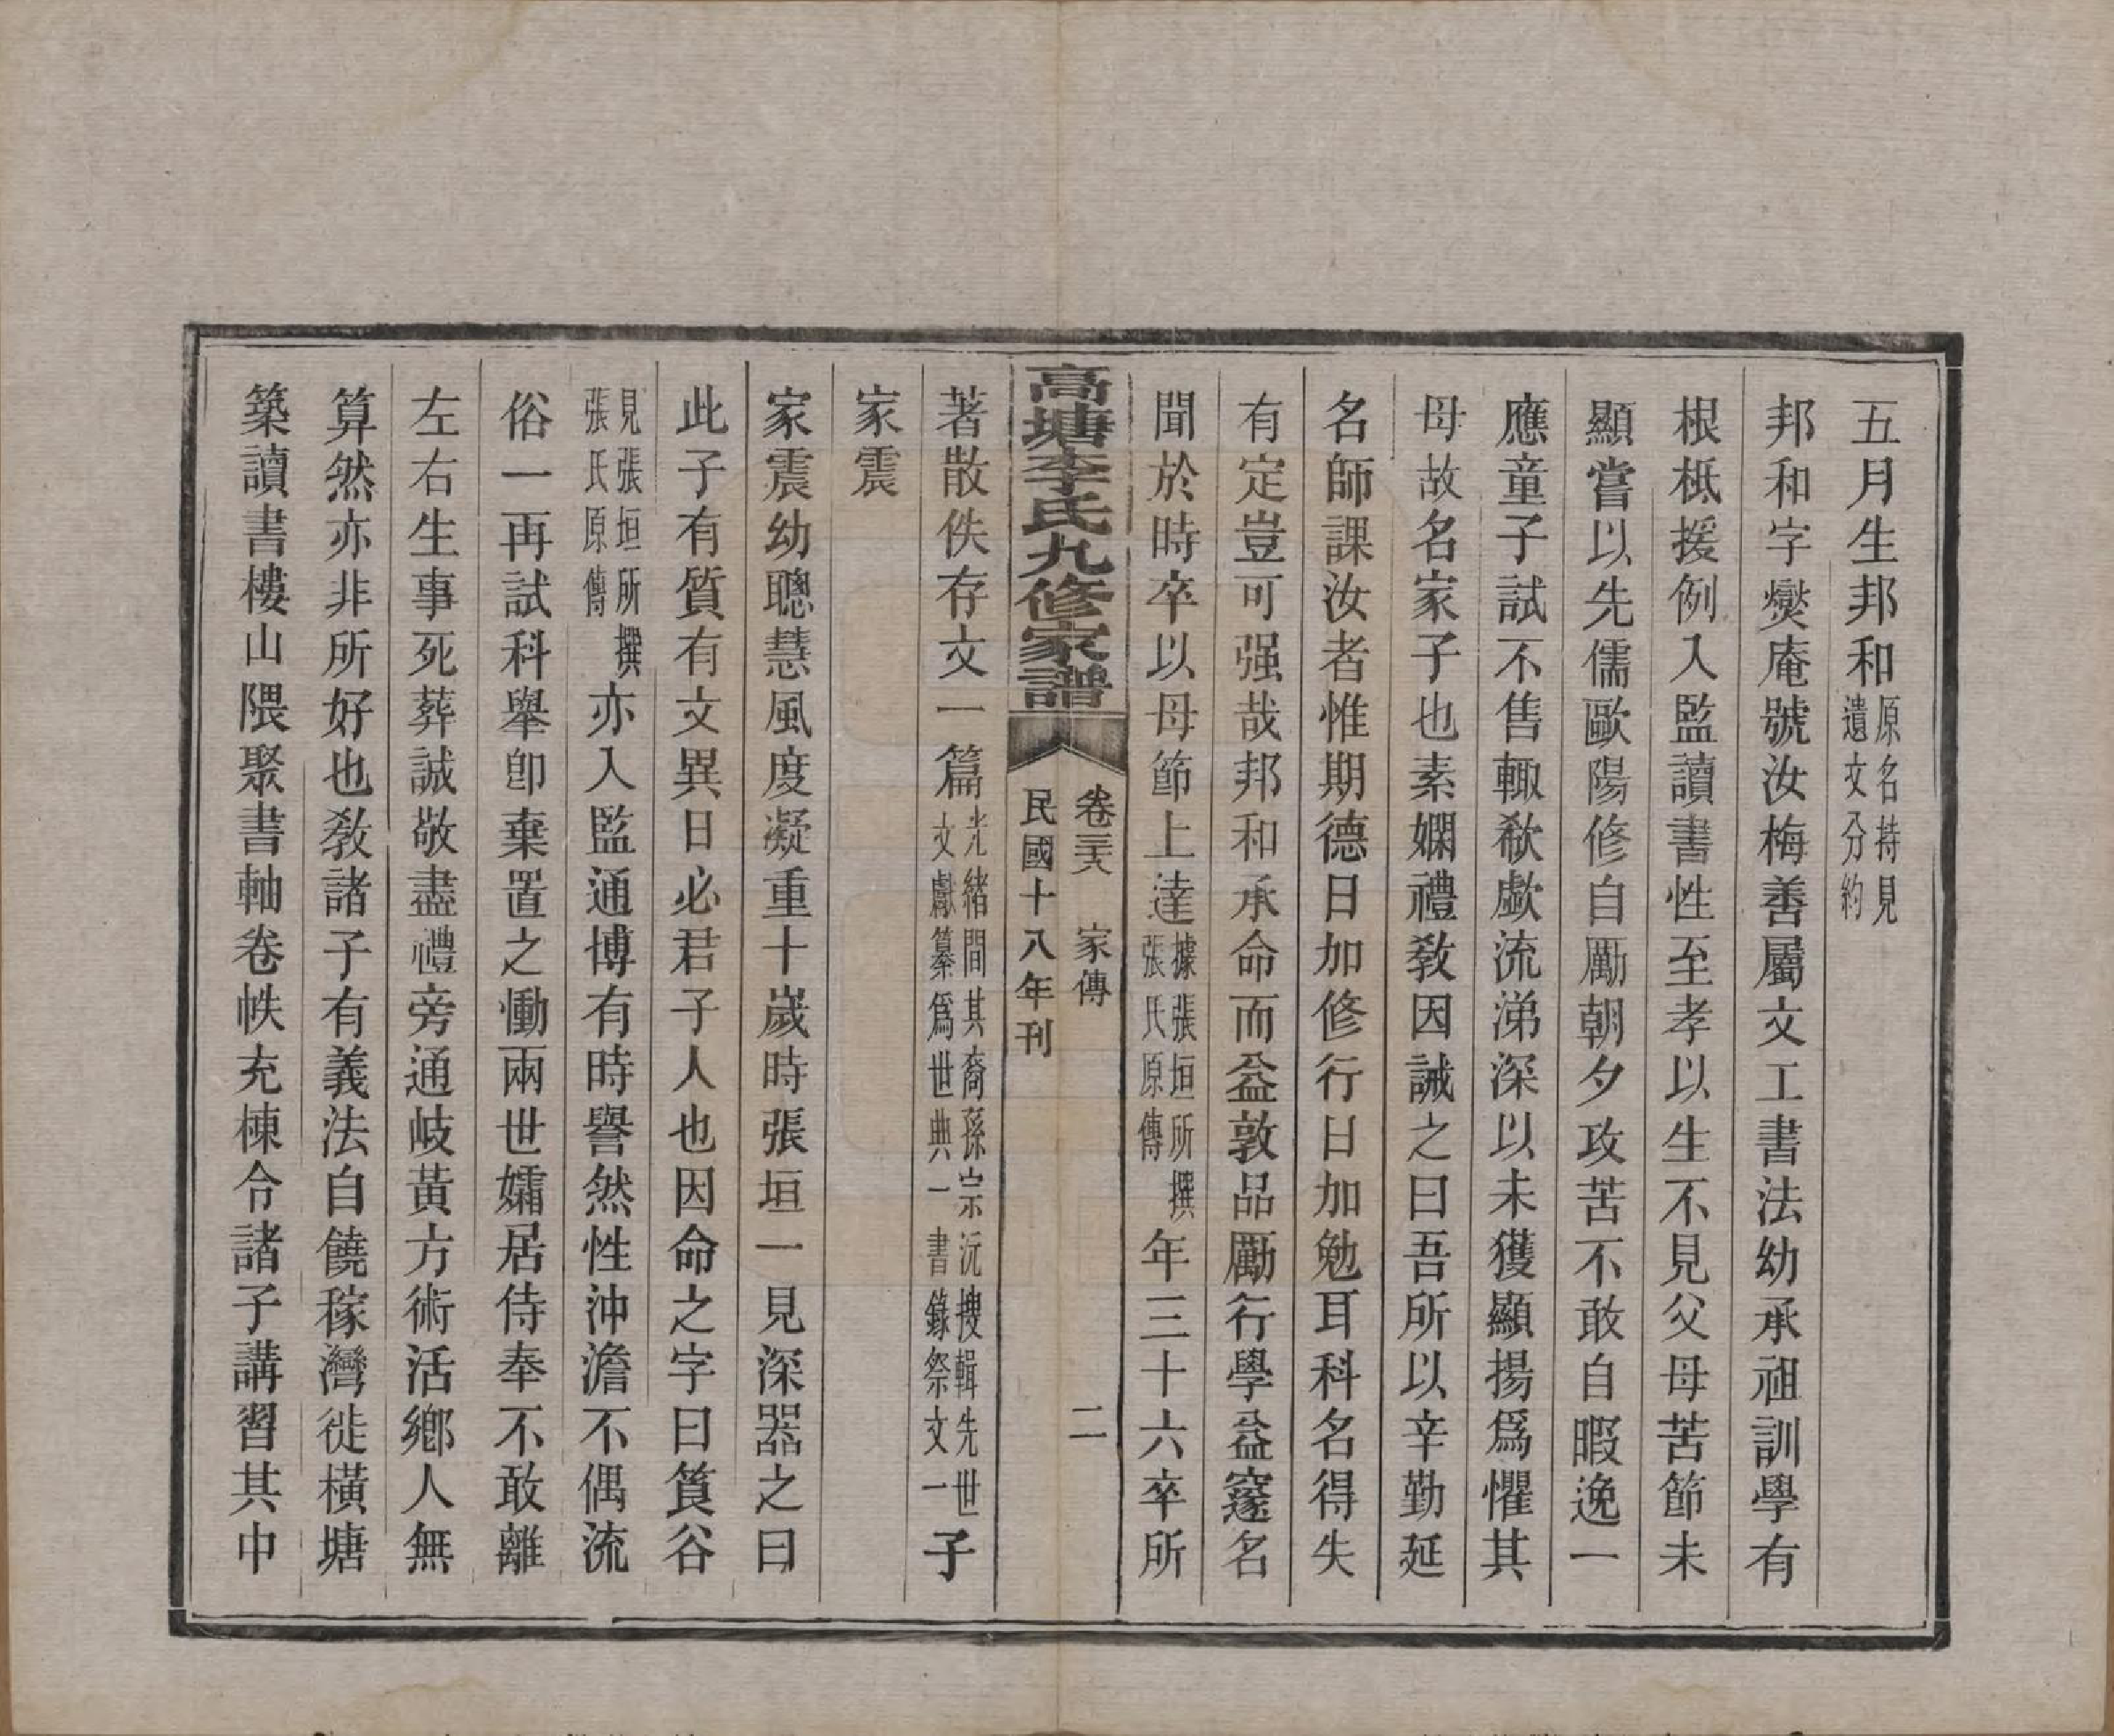 五月生邦和原名持見遺文分約
邦和字爕庵號汝梅善屬文工書法幼承祖訓學有
根柢援例入監讀書性至孝以生不見父母苦節未
顯嘗以先儒歐陽修自勵朝夕攻苦不敢自暇逸一
應童子試不售輙欷歔流涕深以未獲顯揚爲懼其
母故名家子也素嫻禮敎因誡之曰吾所以辛勤延
名師課汝者惟期德日加修行日加勉耳科名得失
有定豈可强哉邦和承命而益敦品勵行學益窾名
聞於時卒以母節上達據張垣所撰張氏原傳年三十六卒所
高塘李氏九修家譜
卷三六 家傳 二
民國十八年刊
著散佚存文一篇光緒間其裔孫宗沅搜輯先世文獻纂爲世典一書錄祭文一子
家震
家震幼聰慧風度凝重十歲時張垣一見深器之曰
此子有質有文異日必君子人也因命之字曰篔谷
見張垣所撰張氏原傳亦入監通博有時譽然性沖澹不偶流
俗一再試科舉卽棄置之慟兩世孀居侍奉不敢離
左右生事死葬誠敬盡禮旁通岐黃方術活鄉人無
算然亦非所好也敎諸子有義法自饒稼灣徙橫塘
築讀書樓山隈聚書軸卷帙充棟令諸子講習其中